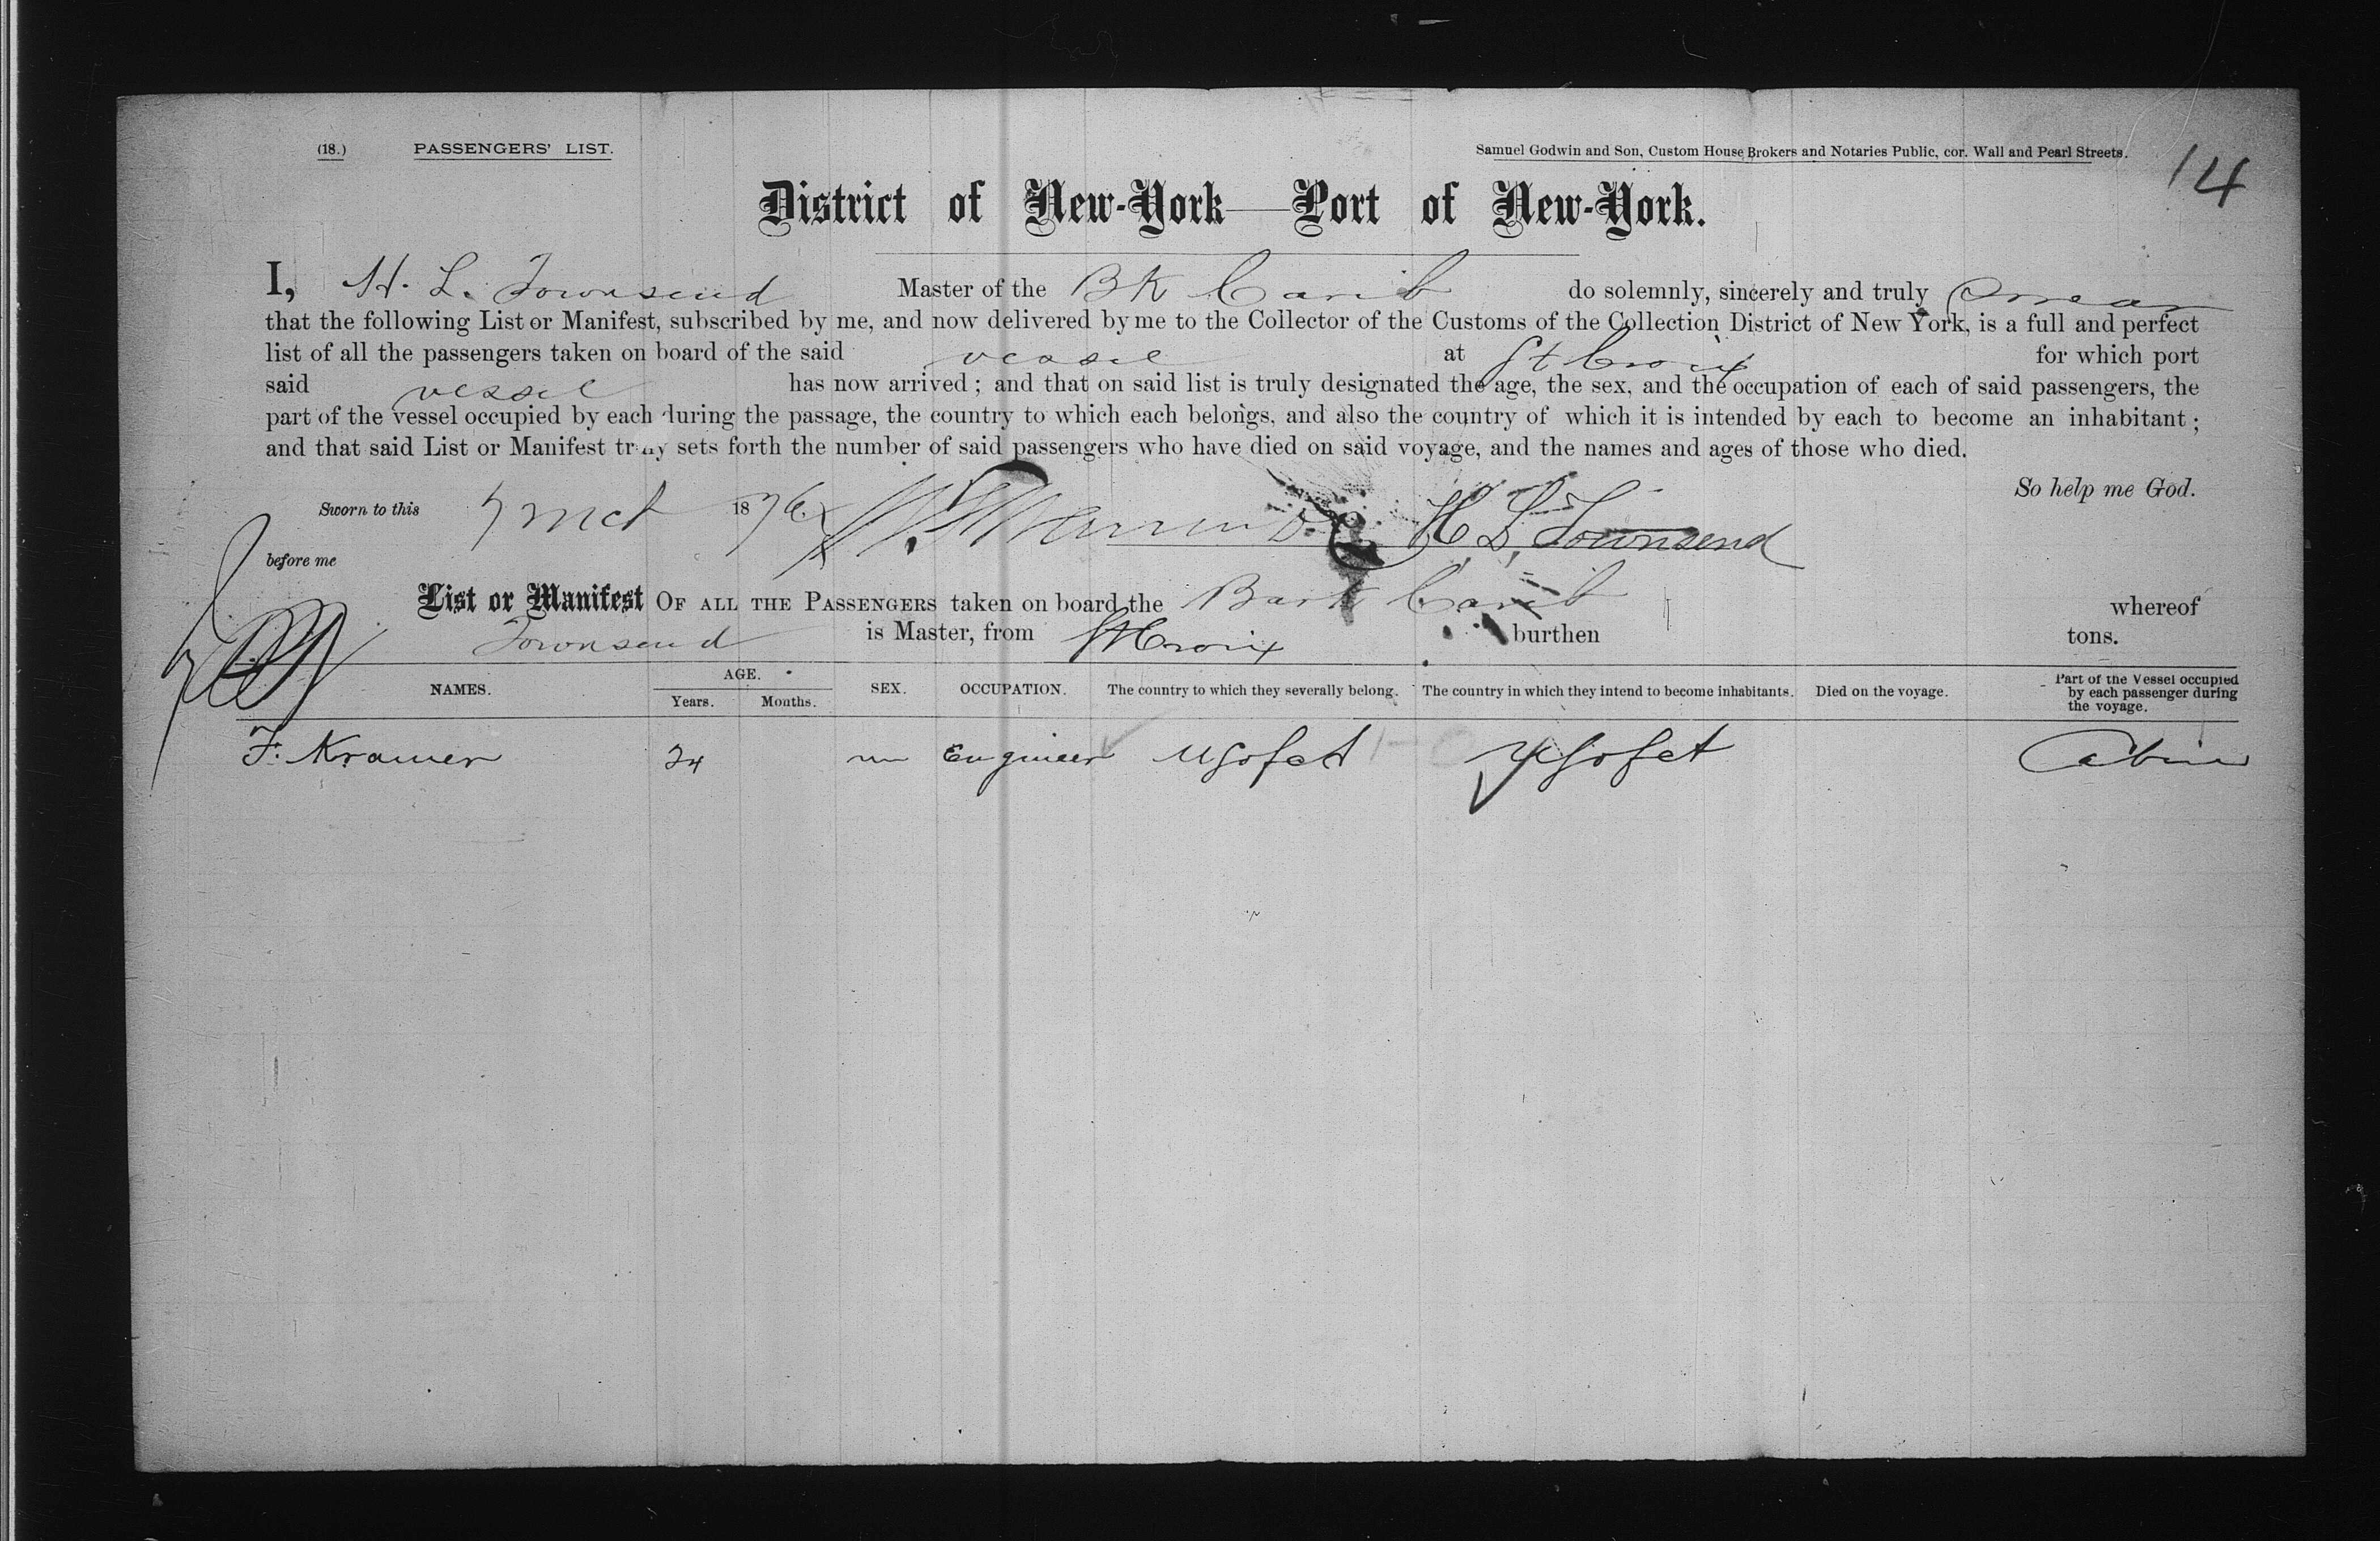 (18.) PASSENGERS' LIST. Samuel Godwin and Son, Custom House Brokers and Notaries Public, cor. Wall and Pearl Streets.
14
District of New-York—Port of New-York.
I, H. L. Townsend Master of the BK Carib do solemnly, sincerely and truly swear
that the following List or Manifest, subscribed by me, and now delivered by me to the Collector of the Customs of the Collection District of New York, is a full and perfect
list of all the passengers taken on board of the said vessel at St Croix for which port
said vessel has now arrived; and that on said list is truly designated the age, the sex, and the occupation of each of said passengers, the
part of the vessel occupied by each during the passage, the country to which each belongs, and also the country of which it is intended by each to become an inhabitant;
and that said List or Manifest truly sets forth the number of said passengers who have died on said voyage, and the names and ages of those who died.
So help me God.
Sworn to this 7 1876 H L Townsend
before me
List or Manifest OF ALL THE PASSENGERS taken on board the Bark Carib whereof
Townsend is Master, from St Croix burthen tons.
NAMES. AGE. Years. Months. SEX. OCCUPATION. The country to which they severally belong. The country in which they intend to become inhabitants. Died on the voyage. Part of the Vessel occupied by each passenger during the voyage.
F. Kramer 24 m Engineer